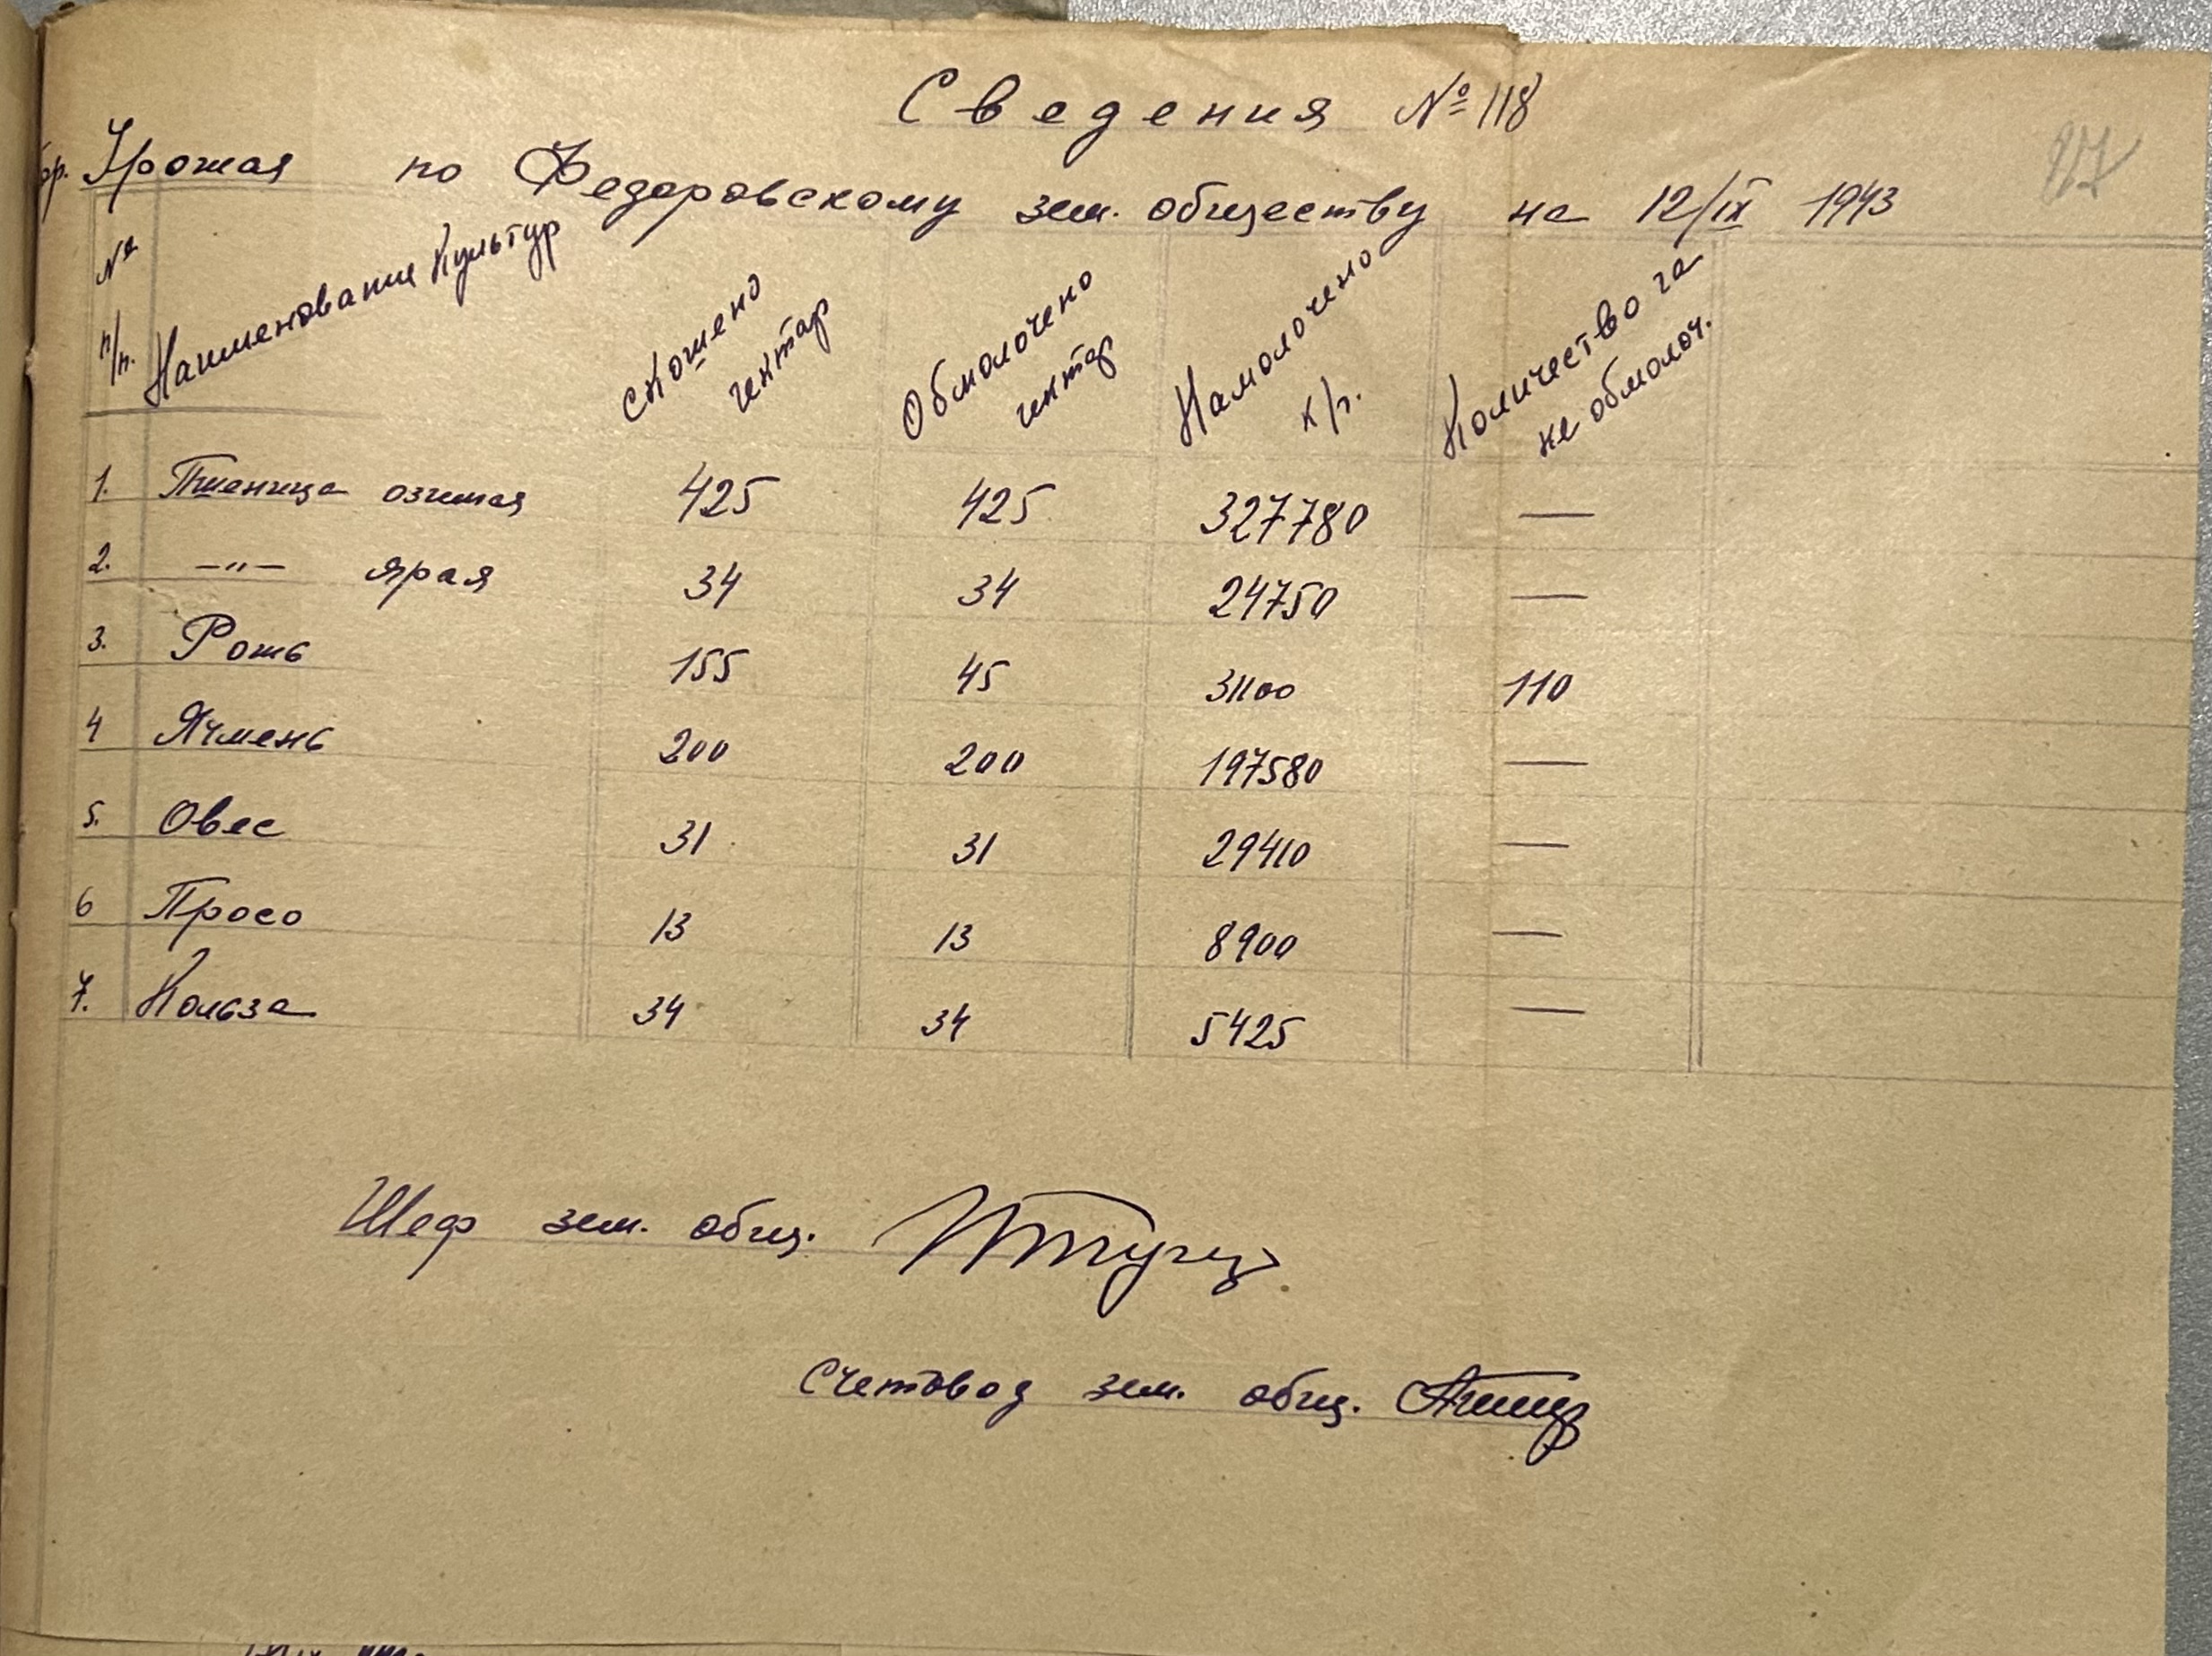 Сведения № 118
27
бр. Урожая по Федоровскому зем. обществу на 12/IX 1943
№ п/п. Наименования Культур скошено гектар Обмолочено гектар Намолочено к/г. Количество га не обмолоч.
1. Пшеница озимая 425 425 327780 —
2. —"— ярая 34 34 24750 —
3. Рожь 155 45 31100 110
4 Ячмень 200 200 197580 —
5. Овес 31 31 29410 —
6 Просо 13 13 8900 —
7. Кольза 34 34 5425 —
Шеф зем. общ.
Счетовод зем. общ.